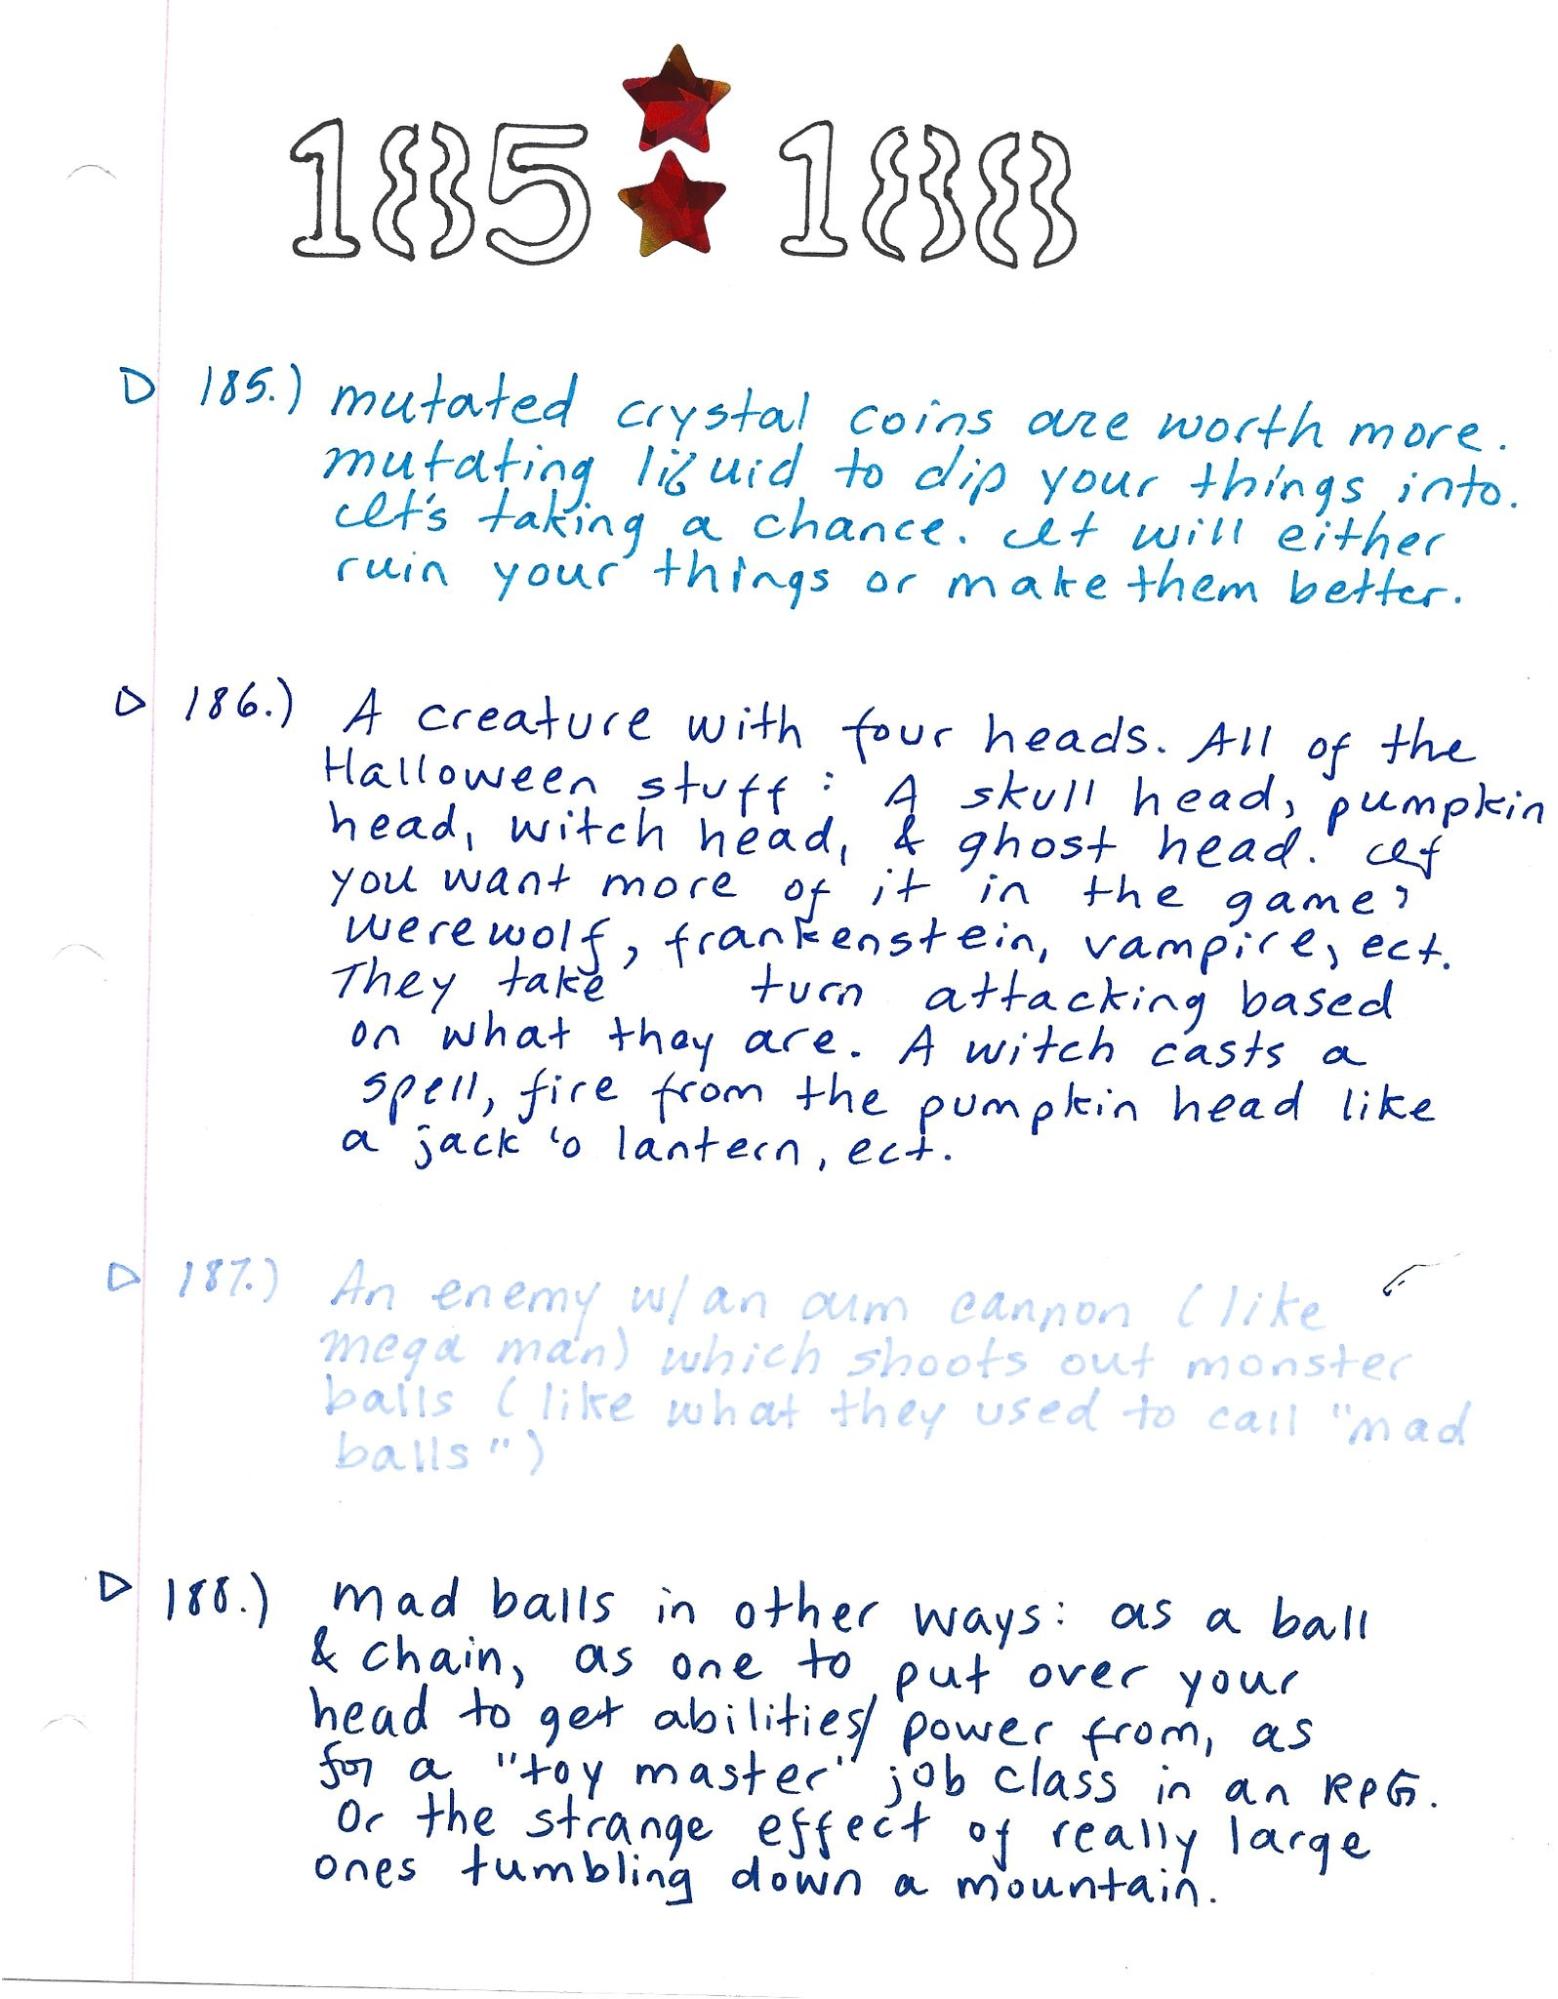 185 188
185.) mutated crystal coins are worth more.
mutating liquid to dip your things into.
It's taking a chance. It will either
ruin your things or make them better.
186.) A creature with four heads. All of the
Halloween stuff: A skull head, pumpkin
head, witch head, & ghost head. If
you want more of it in the game;
werewolf, frankenstein, vampire, ect.
They take turn attacking based
on what they are. A witch casts a
spell, fire from the pumpkin head like
a jack 'o lantern, ect.
187.) An enemy w/ an arm cannon (like
mega man) which shoots out monster
balls (like what they used to call "mad
balls")
188.) mad balls in other ways: as a ball
& chain, as one to put over your
head to get abilities/ power from, as
for a "toy master" job class in an RPG.
Or the strange effect of really large
ones tumbling down a mountain.